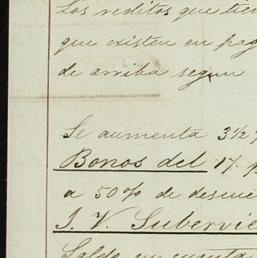 Los reditos que tien
que existen en pag
de arriba segun
Se aumenta 3½%
Bonos del 1% p
a 50% de descue
J. V. Subervie
Saldo en cuenta